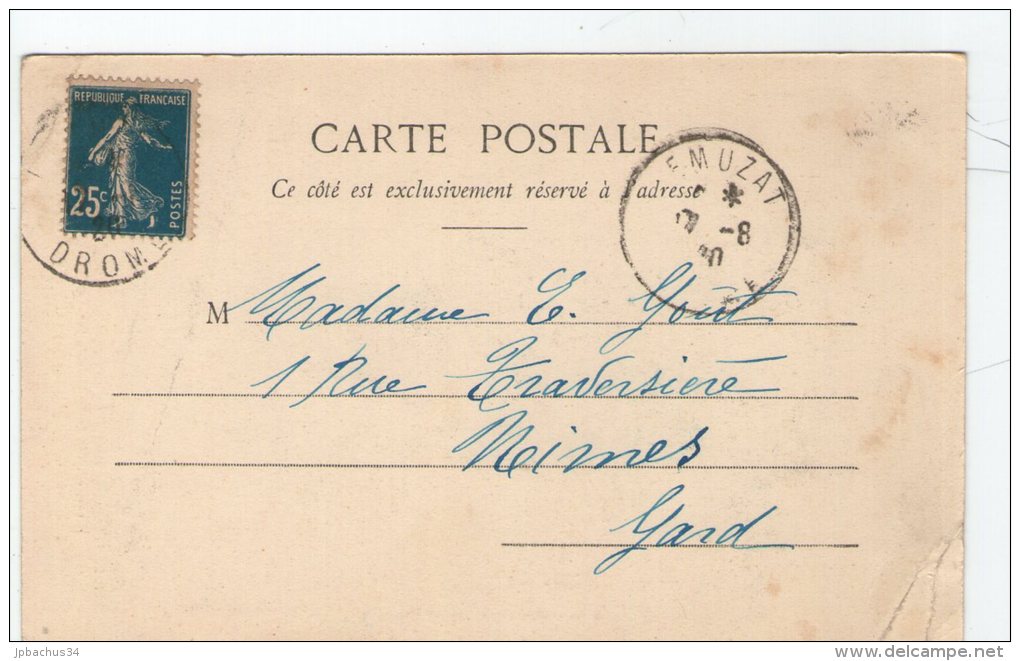 REPUBLIQUE FRANCAISE
25c
POSTES
DROME
CARTE POSTALE
Ce côté est exclusivement réservé à l'adresse
EMUZAT
* -8
M Madame E. Goût
1 Rue Traversière
Nimes
Gard
jpbachus34
delcampe.net